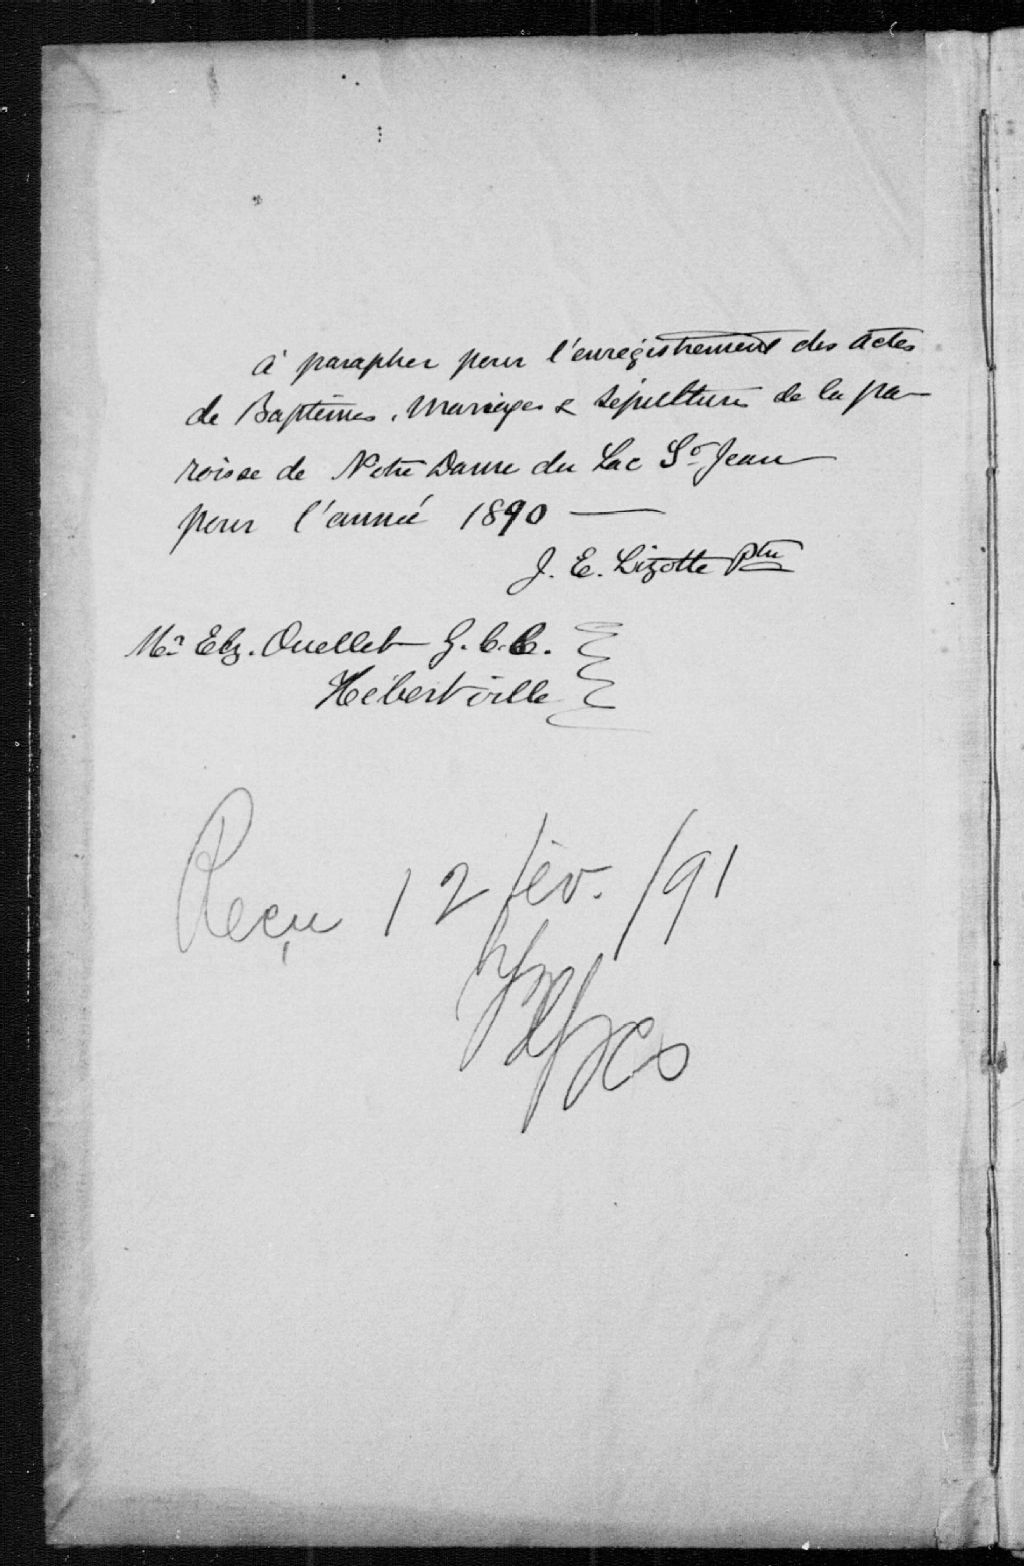 à parapher pour l'enregistrement des actes
de Baptêmes, Mariages & Sépultures de la pa-
roisse de Notre Dame du Lac St. Jean
pour l'année 1890 —
J. E. Lizotte Ptre
Mr. Elz. Ouellet G. C. C.
Hébertville
Reçu 12 fév. /91